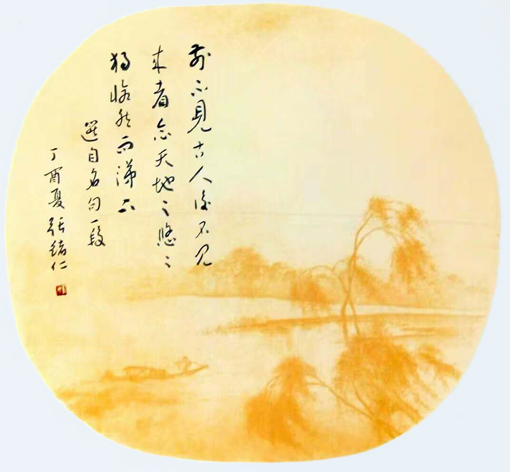 前不見古人後不見
來者念天地之悠々
獨愴然而涕下
選自名句一段
丁酉夏張緒仁